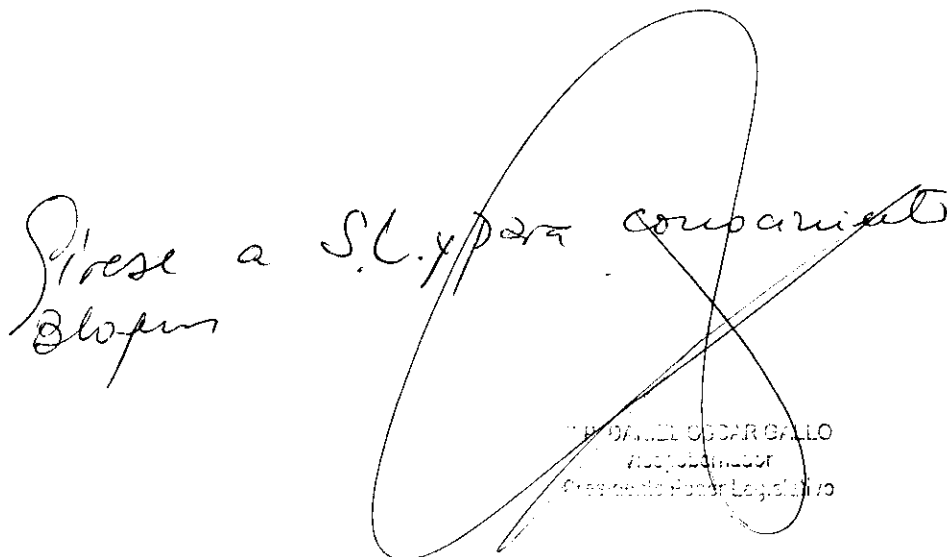 Gírese a S.L. y para conocimiento
Bloques
DANIEL OSCAR GALLO
Vicegobernador
Presidente Poder Legislativo